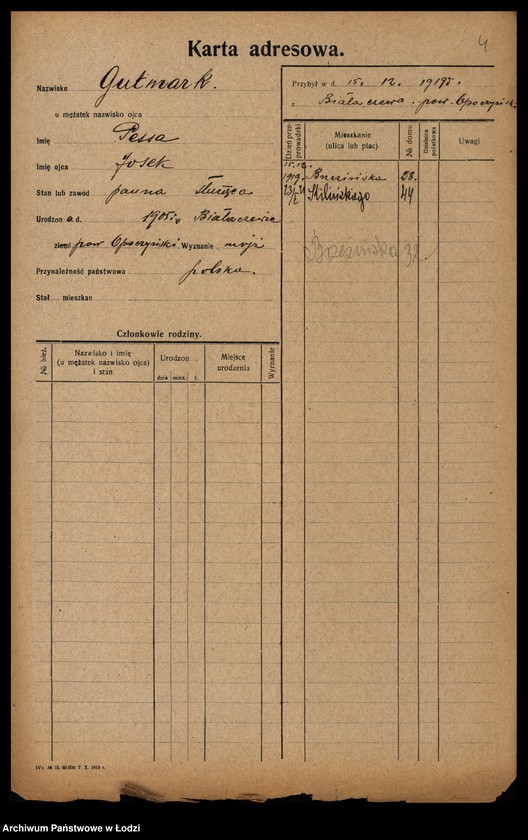 4
Karta adresowa.
Nazwisko Gutmark.
u mężatek nazwisko ojca
Imię Pessa
Imię ojca Josek
Stan lub zawód panna Służąca
Urodzon a d. 1905 r. w Białaczewie
ziemi pow Opoczyński Wyznanie mojż
Przynależność państwowa polska.
Stał. mieszkan
Przybył w d. 15. 12. 1919 r.
z Białaczewa. pow. Opoczyńsk
Dzień przeprowadzki
Mieszkanie (ulica lub plac)
№ domu
Działania podatkowa
Uwagi
15.12.
1919. Brzezińska 28.
23/I 21 Kilińskiego 44
Brzezińska 32
Członkowie rodziny.
№ bież.
Nazwisko i imię
(u mężatek nazwisko ojca)
i stan
Urodzon
dnia mies. r.
Miejsce
urodzenia
Wyznanie
IVa № 15. 60 000 7. X. 1919 r.
Archiwum Państwowe w Łodzi